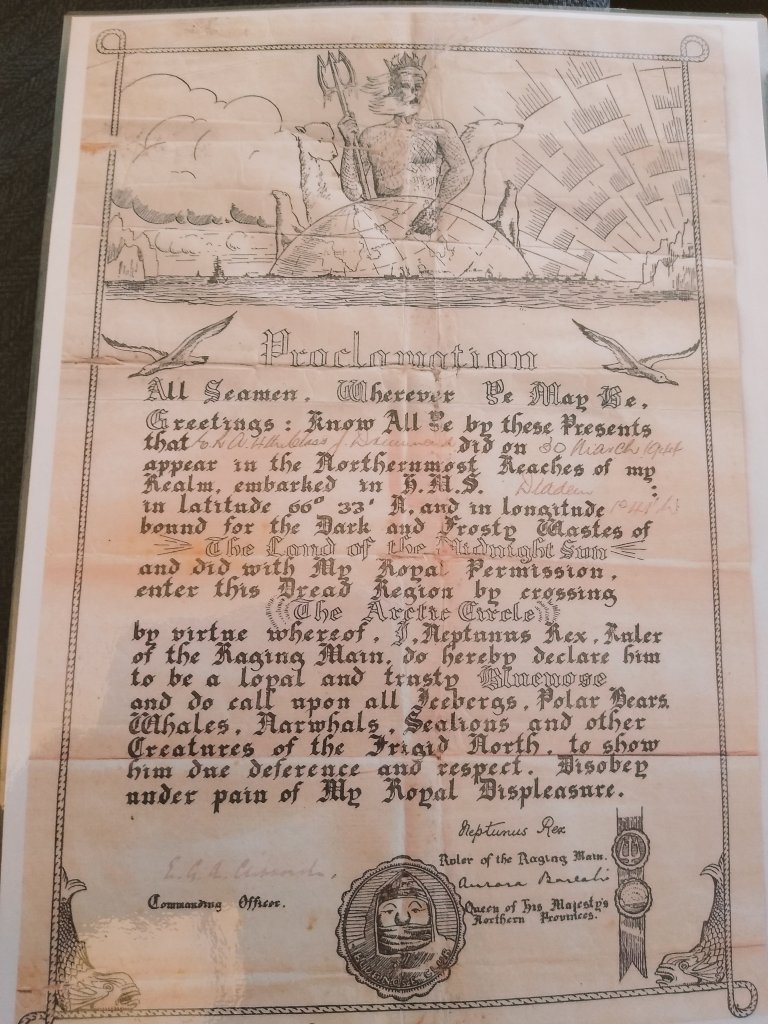 Proclamation
All Seamen, Wherever Ye May Be,
Greetings: Know All Ye by these Presents
that did on 30 March 1944
appear in the Northernmost Reaches of my
Realm, embarked in H.M.S. :
in latitude 66° 33' N, and in longitude
bound for the Dark and Frosty Wastes of
The Land of the Midnight Sun
and did with My Royal Permission,
enter this Dread Region by crossing
The Arctic Circle
by virtue whereof, I, Neptunus Rex, Ruler
of the Raging Main, do hereby declare him
to be a loyal and trusty Bluenose
and do call upon all Icebergs, Polar Bears,
Whales, Narwhals, Sealions and other
Creatures of the Frigid North, to show
him due deference and respect. Disobey
under pain of My Royal Displeasure.
Neptunus Rex
Ruler of the Raging Main.
Commanding Officer.
Aurora Borealis
Queen of his Majesty's
Northern Provinces.